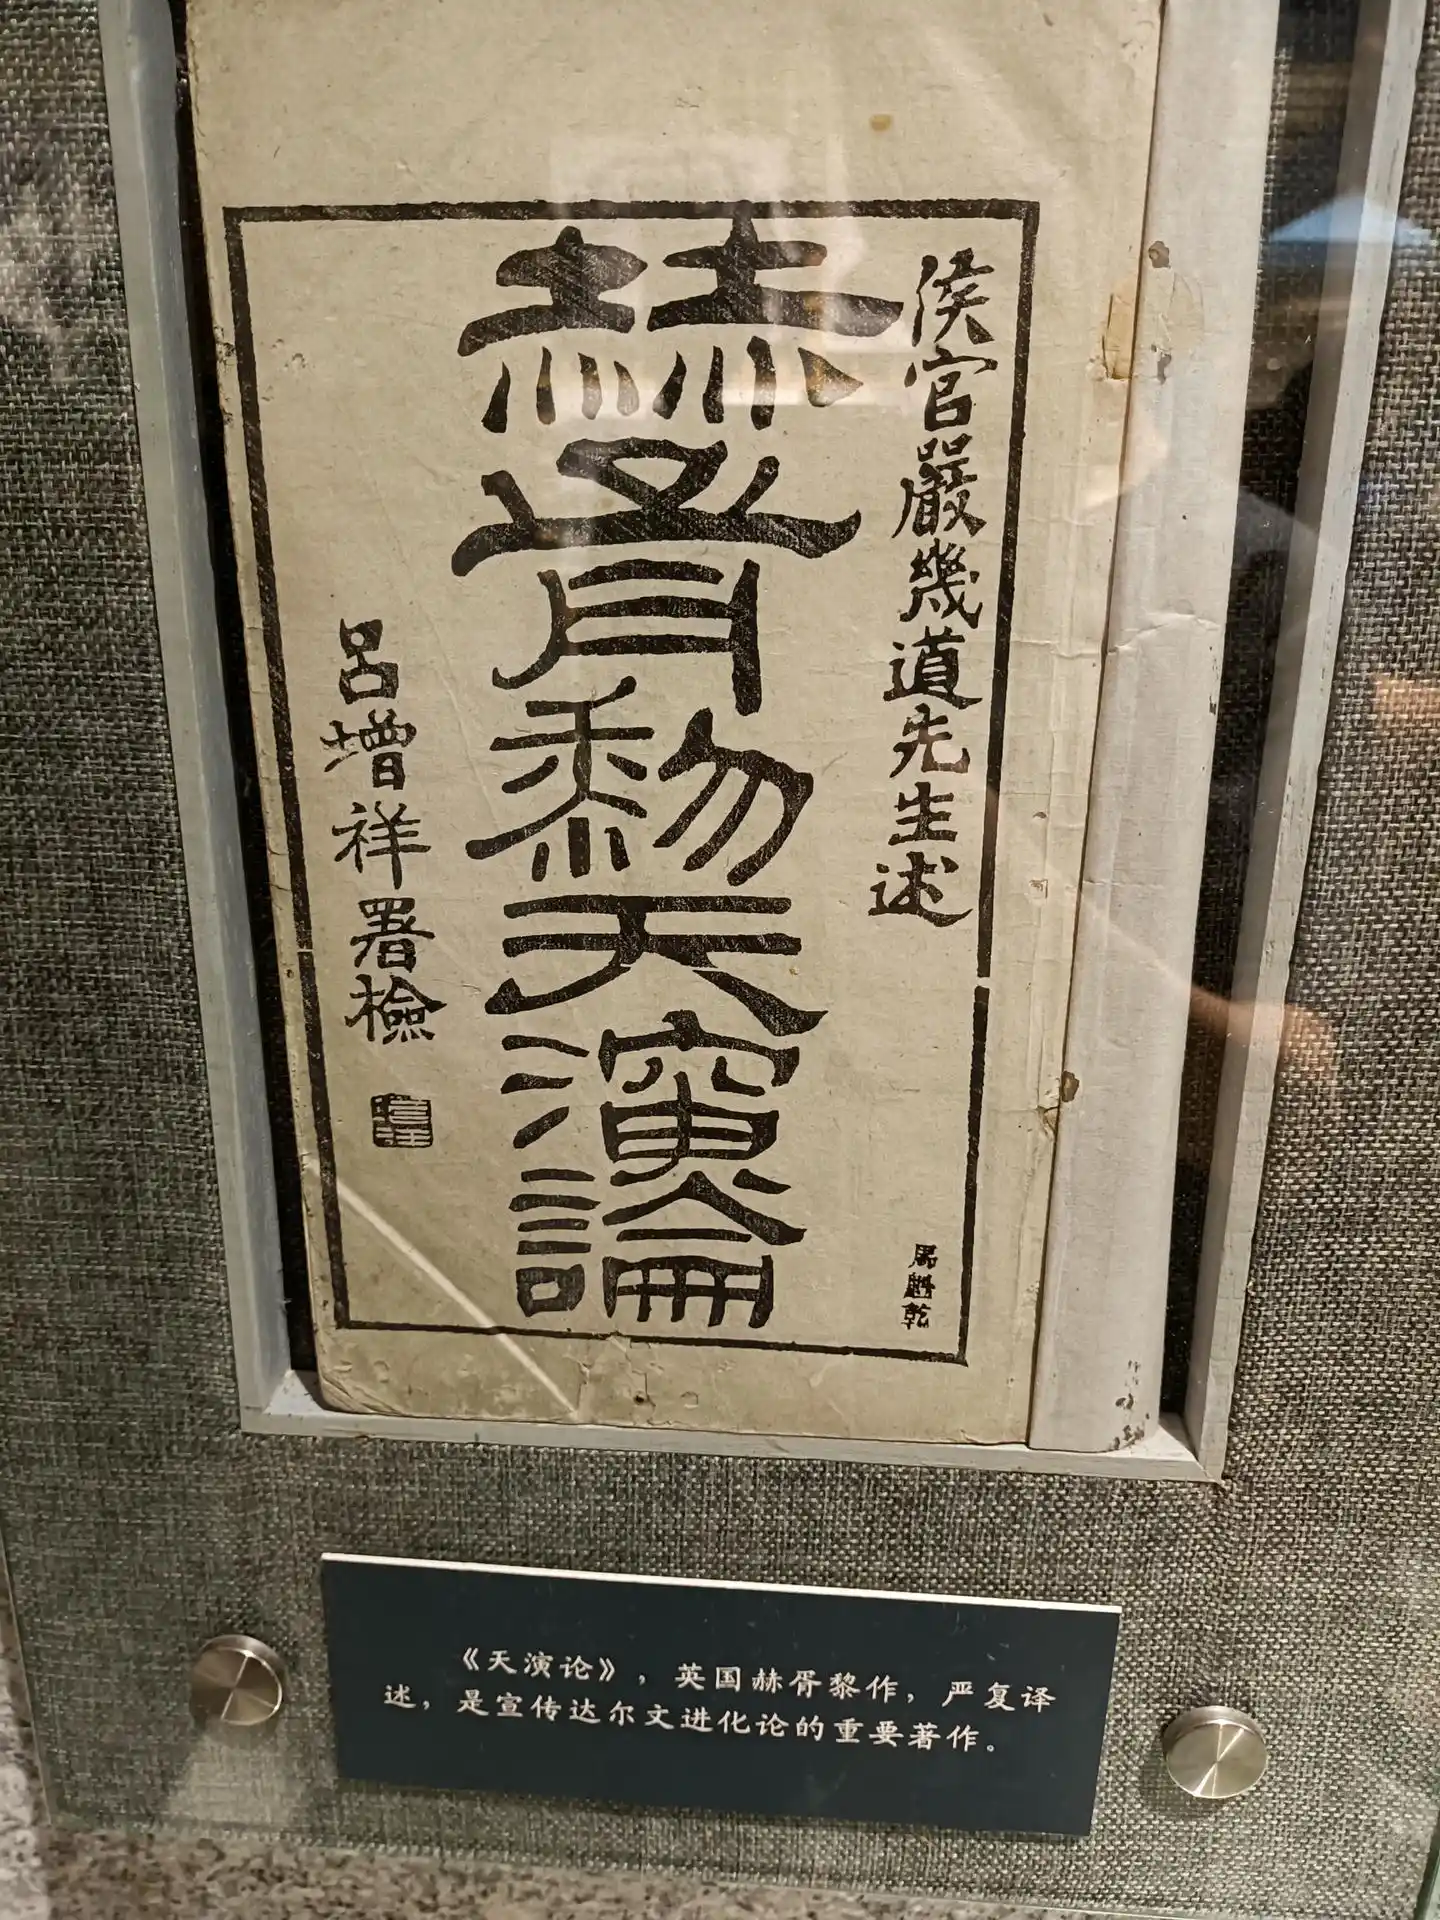 侯官嚴幾道先生述
赫胥黎天演論
呂增祥署檢
《天演论》，英国赫胥黎作，严复译
述，是宣传达尔文进化论的重要著作。